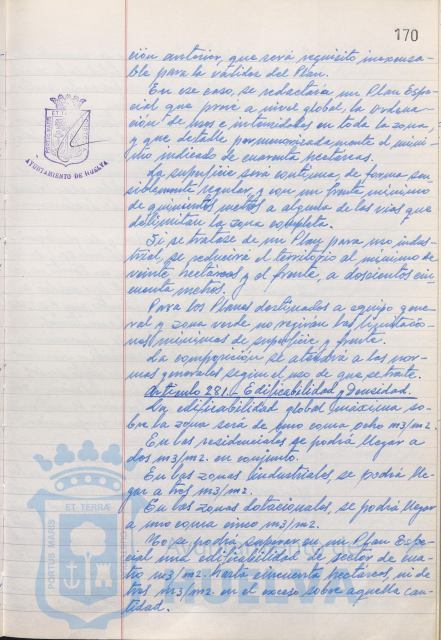 170
ción anterior, que será requisito inexcusa-
ble para la validez del Plan.
En ese caso, se redactaría un Plan Espe-
cial que prevé a nivel global, la Ordena-
ción de usos e intensidades en toda la zona,
y que detalle pormenorizadamente el míni-
mo indicado de cuarenta hectáreas.
La superficie será continua, de forma sen-
siblemente regular, y con un frente mínimo
de quinientos metros a alguna de las vías que
delimitan la zona completa.
Si se tratase de un Plan para uso indus-
trial, se reducirá el territorio al mínimo de
veinte hectáreas y el frente, a doscientos cin-
cuenta metros.
Para los Planes destinados a equipo gene-
ral y zona verde no regirán las limitacio-
nes mínimas de superficie y frente.
La composición se atendrá a las nor-
mas generales según el uso de que se trate.
Artículo 281.- Edificabilidad y Densidad.
La edificabilidad global máxima so-
bre la zona será de uno coma ocho m3/m2.
En las residenciales se podrá llegar a
dos m3/m2. en conjunto.
En las zonas industriales, se podrá lle-
gar a tres m3/m2.
En las zonas dotacionales, se podrá llegar
a uno coma cinco m3/m2.
No se podrá superar en un Plan Espe-
cial una edificabilidad de sector de cua-
tro m3/m2 hasta cincuenta hectáreas, ni de
tres m3/m2 en el exceso sobre aquella can-
tidad.
AYUNTAMIENTO DE HUELVA
PORTUS MARIS
ET TERRÆ
Ayuntamiento de
HUELVA